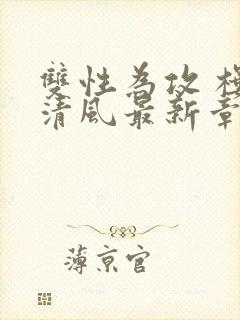 雙性為攻
清風最新章
薄京官